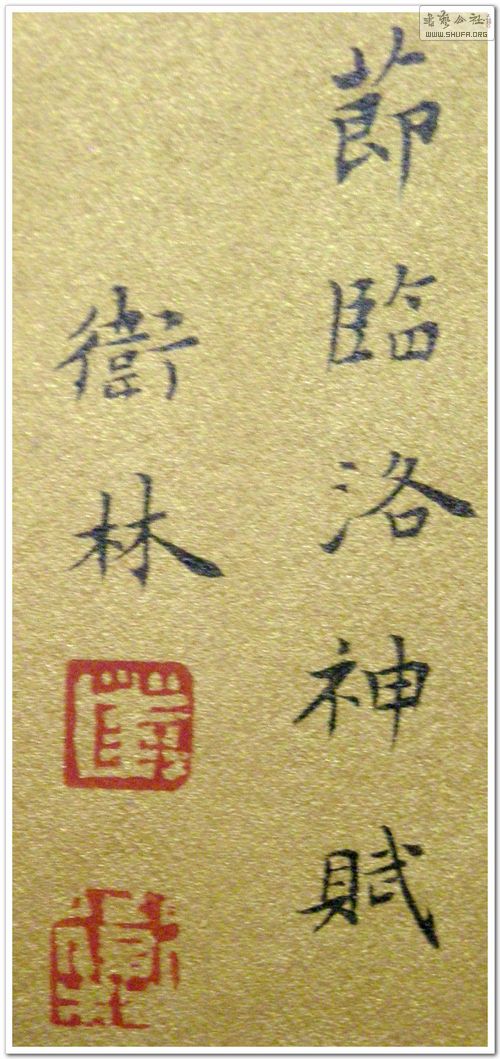 節臨洛神賦
衛林
WWW.SHUFA.ORG